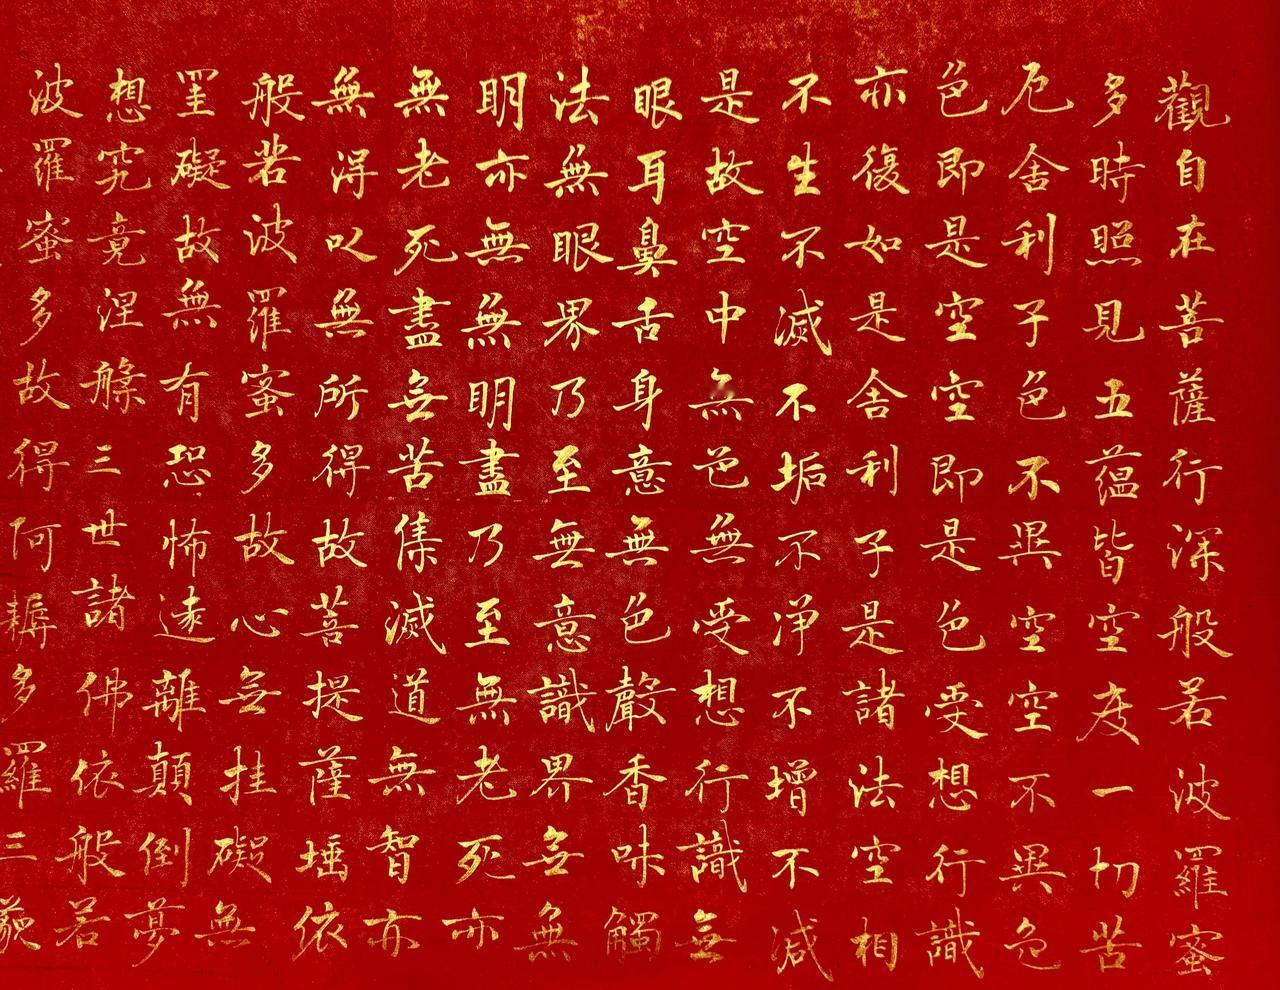 觀自在菩薩行深般若波羅蜜
多時照見五蘊皆空度一切苦
厄舍利子色不異空空不異色
色即是空空即是色受想行識
亦復如是舍利子是諸法空相
不生不滅不垢不淨不增不減
是故空中無色無受想行識無
眼耳鼻舌身意無色聲香味觸
法無眼界乃至無意識界無無
明亦無無明盡乃至無老死亦
無老死盡無苦集滅道無智亦
無得以無所得故菩提薩埵依
般若波羅蜜多故心無挂礙無
罣礙故無有恐怖遠離顛倒夢
想究竟涅槃三世諸佛依般若
波羅蜜多故得阿耨多羅三藐